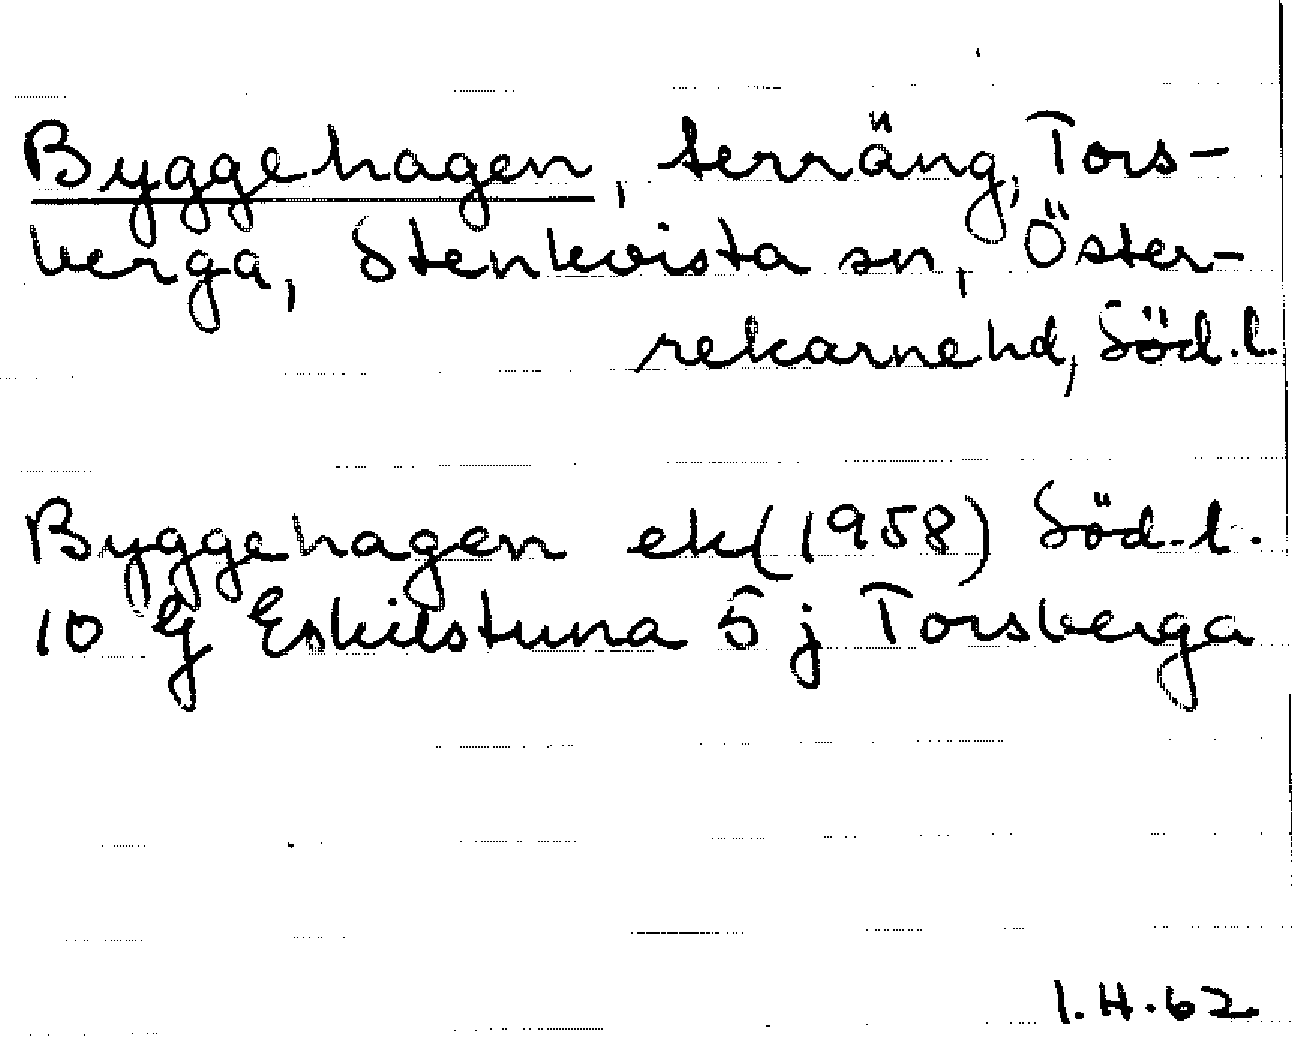 Byggehagen, terräng, Tors-
berga, Stenkvista sn, Öster-
rekarnehd, Söd.l.
Byggehagen ek (1958) Söd.l.
10 G Eskilstuna 5 j Torsberga
I.H.62